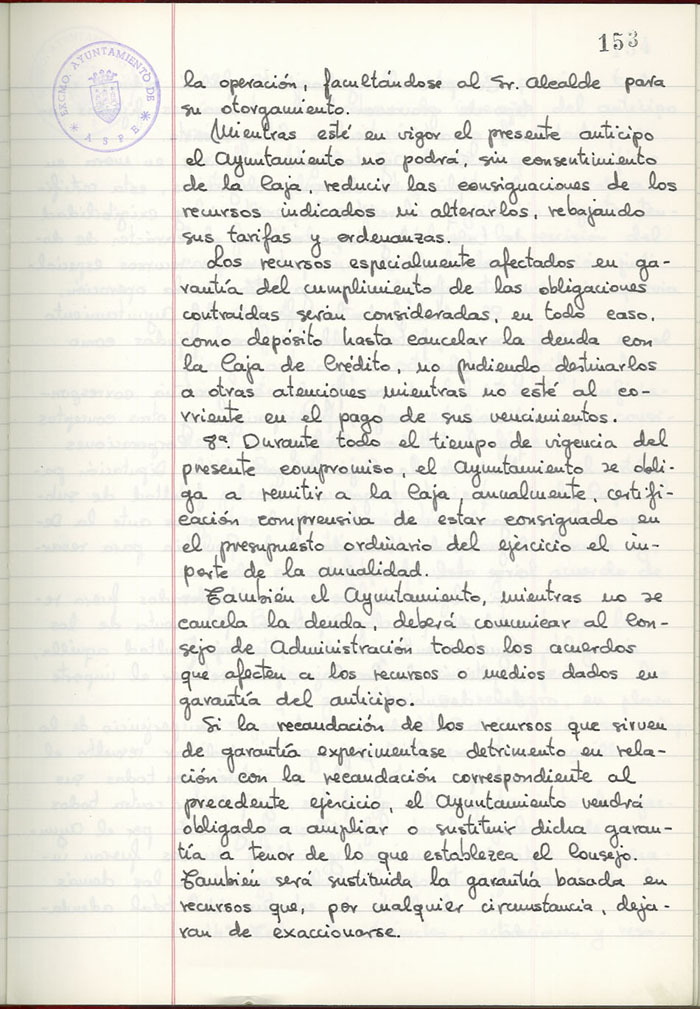 153
EXCMO. AYUNTAMIENTO DE
ASPE
la operación, facultándose al Sr. Alcalde para
su otorgamiento.
Mientras esté en vigor el presente anticipo
el Ayuntamiento no podrá, sin consentimiento
de la Caja, reducir las consignaciones de los
recursos indicados ni alterarlos, rebajando
sus tarifas y ordenanzas.
Los recursos especialmente afectados en ga-
rantía del cumplimiento de las obligaciones
contraídas serán consideradas, en todo caso,
como depósito hasta cancelar la deuda con
la Caja de Crédito, no pudiendo destinarlos
a otras atenciones mientras no esté al co-
rriente en el pago de sus vencimientos.
8ª. Durante todo el tiempo de vigencia del
presente compromiso, el Ayuntamiento se obli-
ga a remitir a la Caja, anualmente, certifi-
cación comprensiva de estar consignado en
el presupuesto ordinario del ejercicio el im-
porte de la anualidad.
También el Ayuntamiento, mientras no se
cancela la deuda, deberá comunicar al Con-
sejo de Administración todos los acuerdos
que afecten a los recursos o medios dados en
garantía del anticipo.
Si la recaudación de los recursos que sirven
de garantía experimentase detrimento en rela-
ción con la recaudación correspondiente al
precedente ejercicio, el Ayuntamiento vendrá
obligado a ampliar o sustituir dicha garan-
tía a tenor de lo que establezca el Consejo.
También será sustituida la garantía basada en
recursos que, por cualquier circunstancia, deja-
ran de exaccionarse.